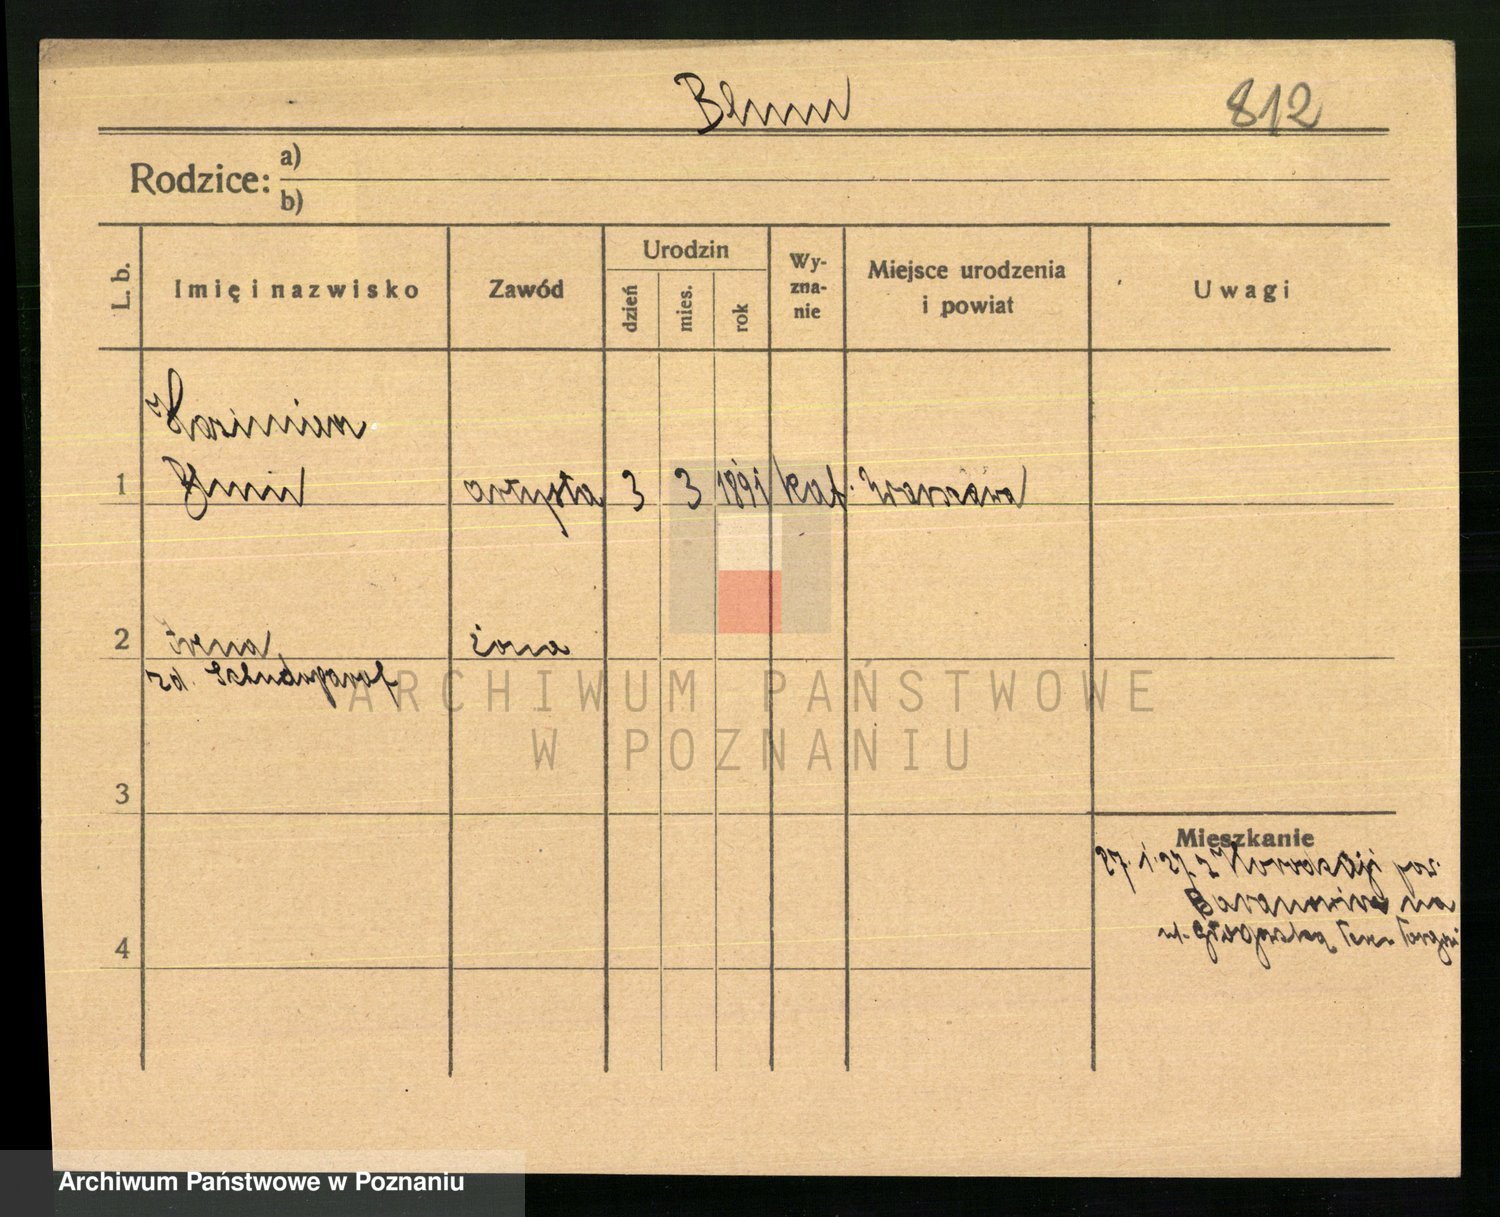 Blum 812
Rodzice: a)
b)
L. b. Imię i nazwisko Zawód Urodzin dzień mies. rok Wy-
zna-
nie Miejsce urodzenia
i powiat Uwagi
Kazimierz
1 Blum artysta 3 3 1891 kat. Warszawa
2 Irena żona
zd.
ARCHIWUM PAŃSTWOWE
W POZNANIU
3
Mieszkanie
27. 1. 27 z
na
4 ul.
Archiwum Państwowe w Poznaniu